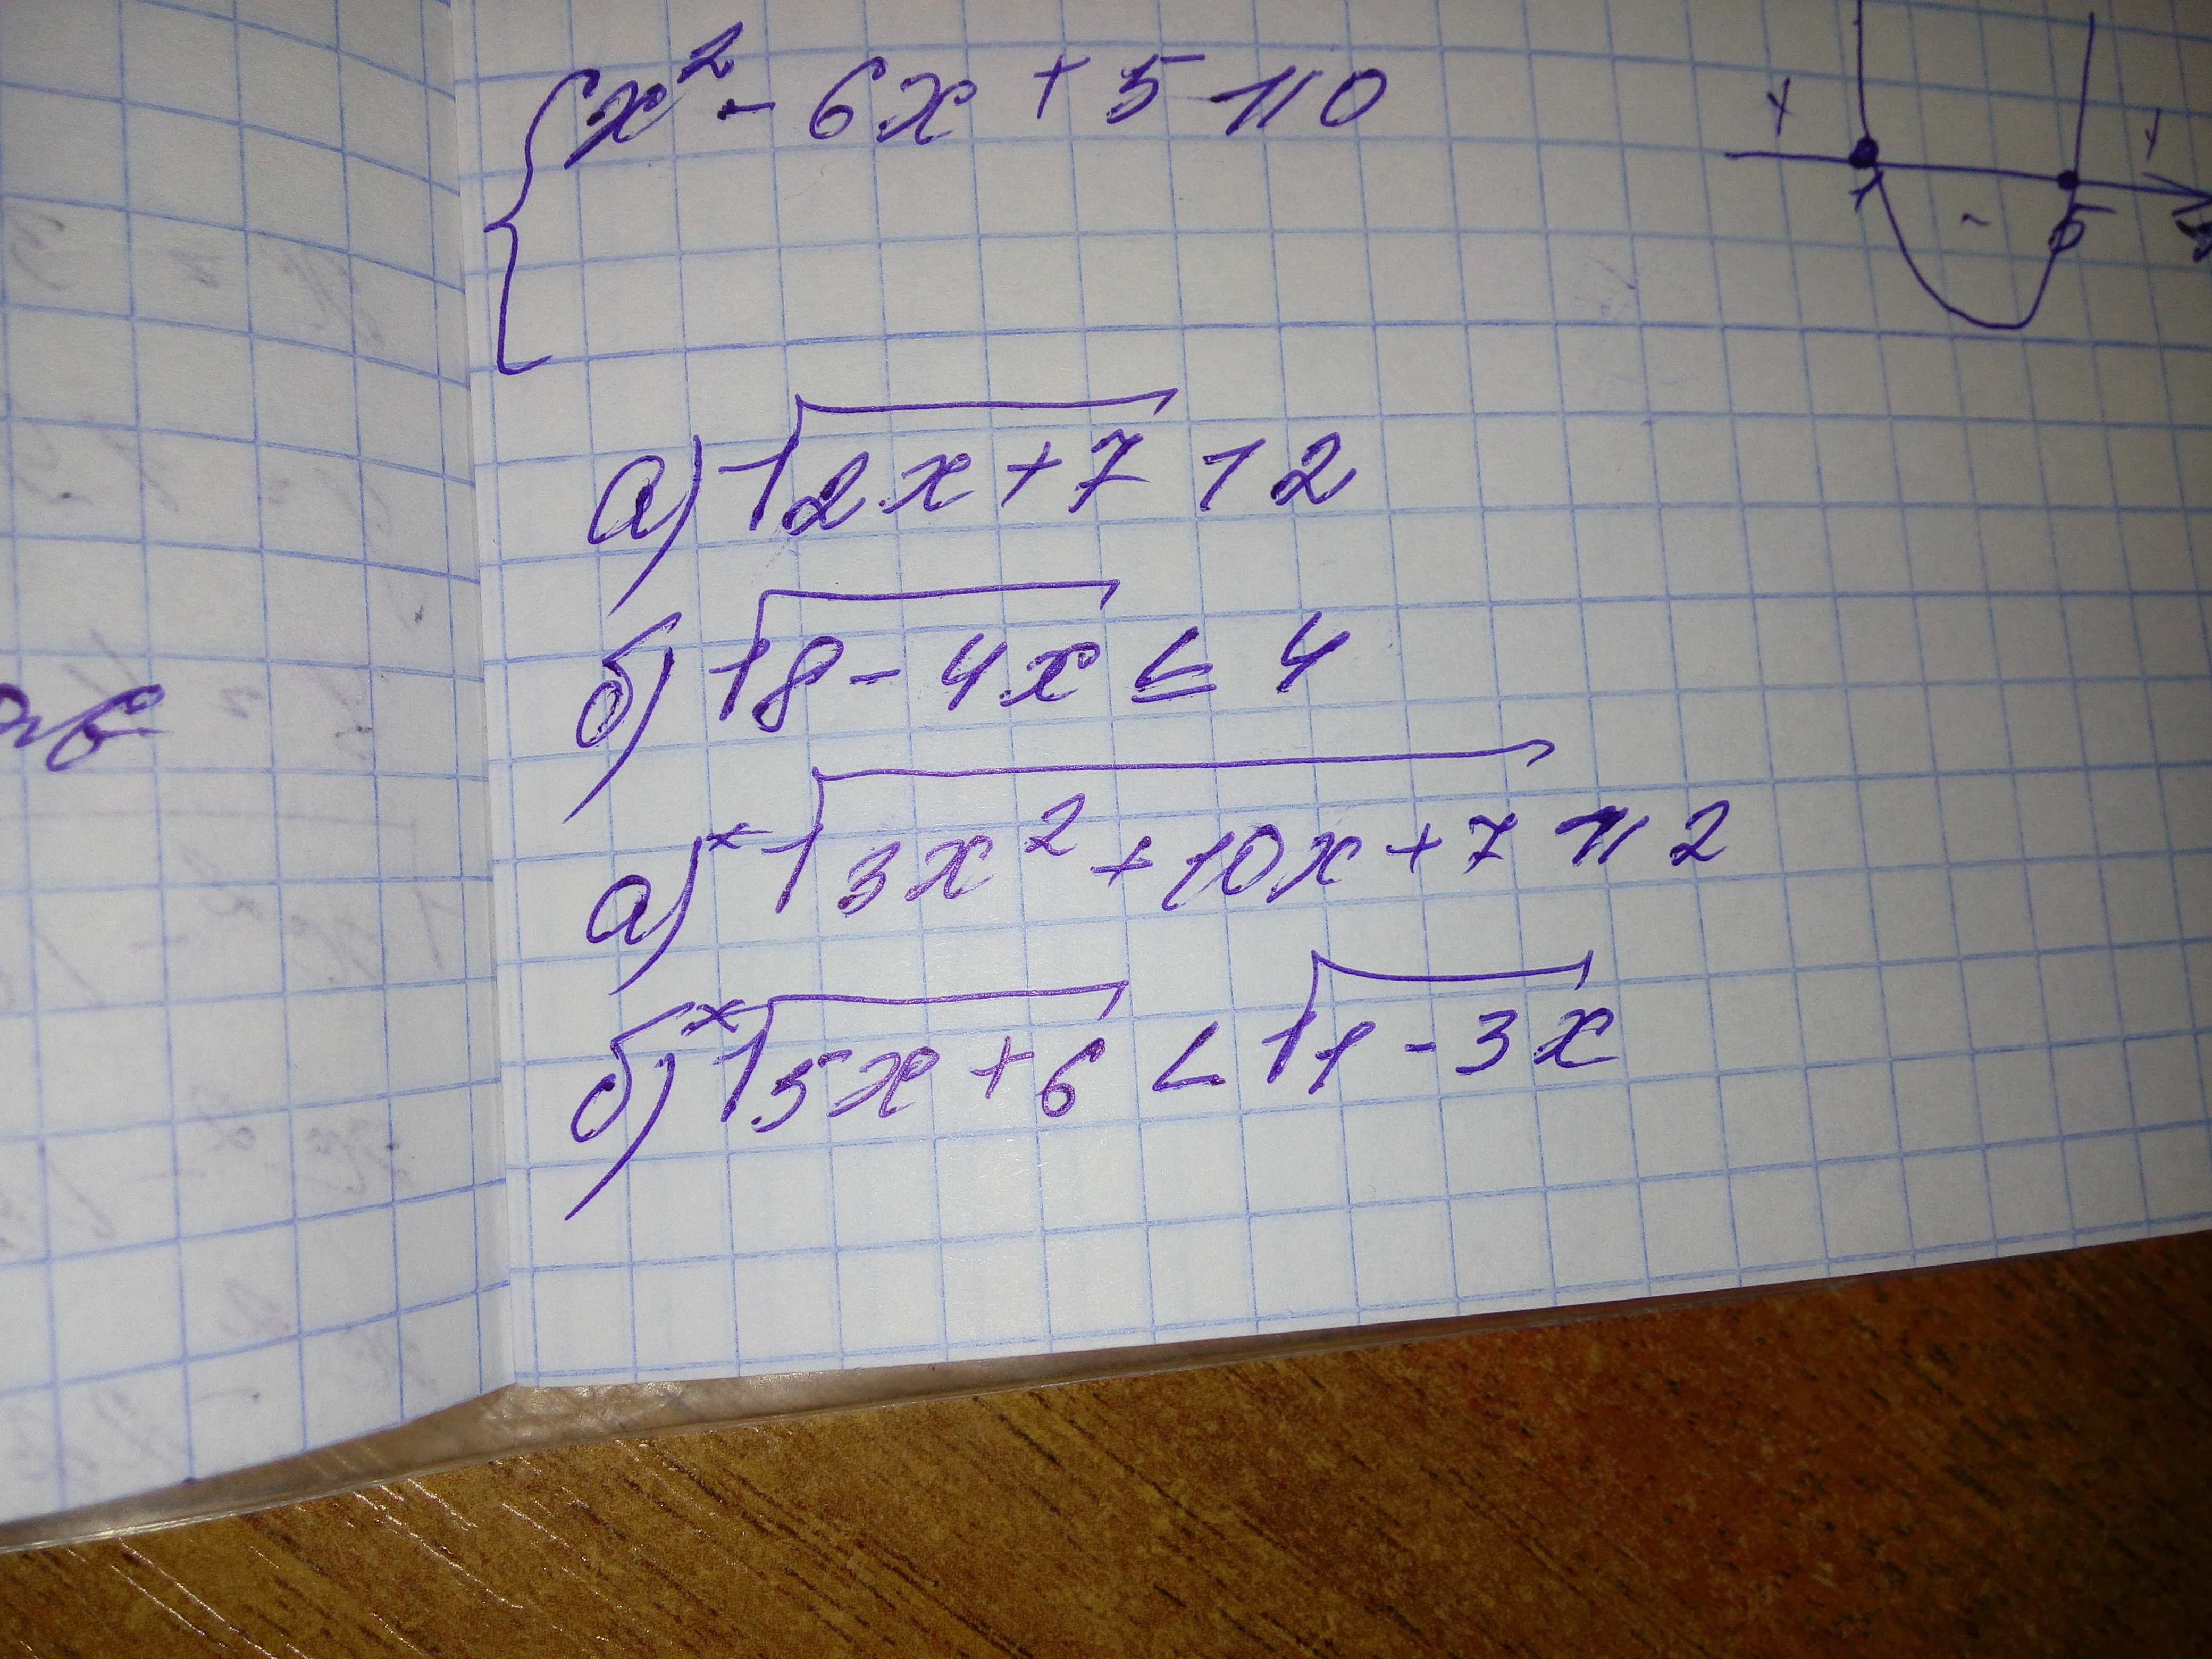 x² - 6x + 5 ⩾ 0
+ - +
1 5 x
а) √2x+7 > 2
б) √8-4x ≤ 4
а)* √3x² + 10x + 7 ⩾ 2
б)* √5x+6 < √1-3x